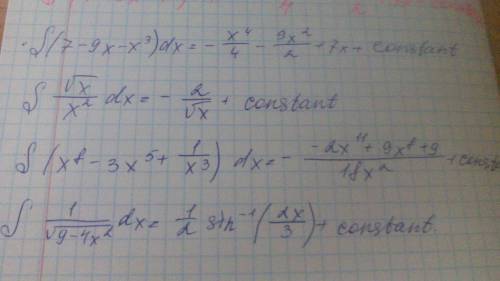 ∫(7-9x-x³)dx = - x⁴/4 - 9x²/2 + 7x + constant
∫ √x/x² dx = - 2/√x + constant
∫ (x⁸ - 3x⁵ + 1/x³) dx = - (-2x¹¹ + 9x⁸ + 9)/18x² + const
∫ 1/√(9-4x²) dx = 1/2 sin⁻¹(2x/3) + constant.